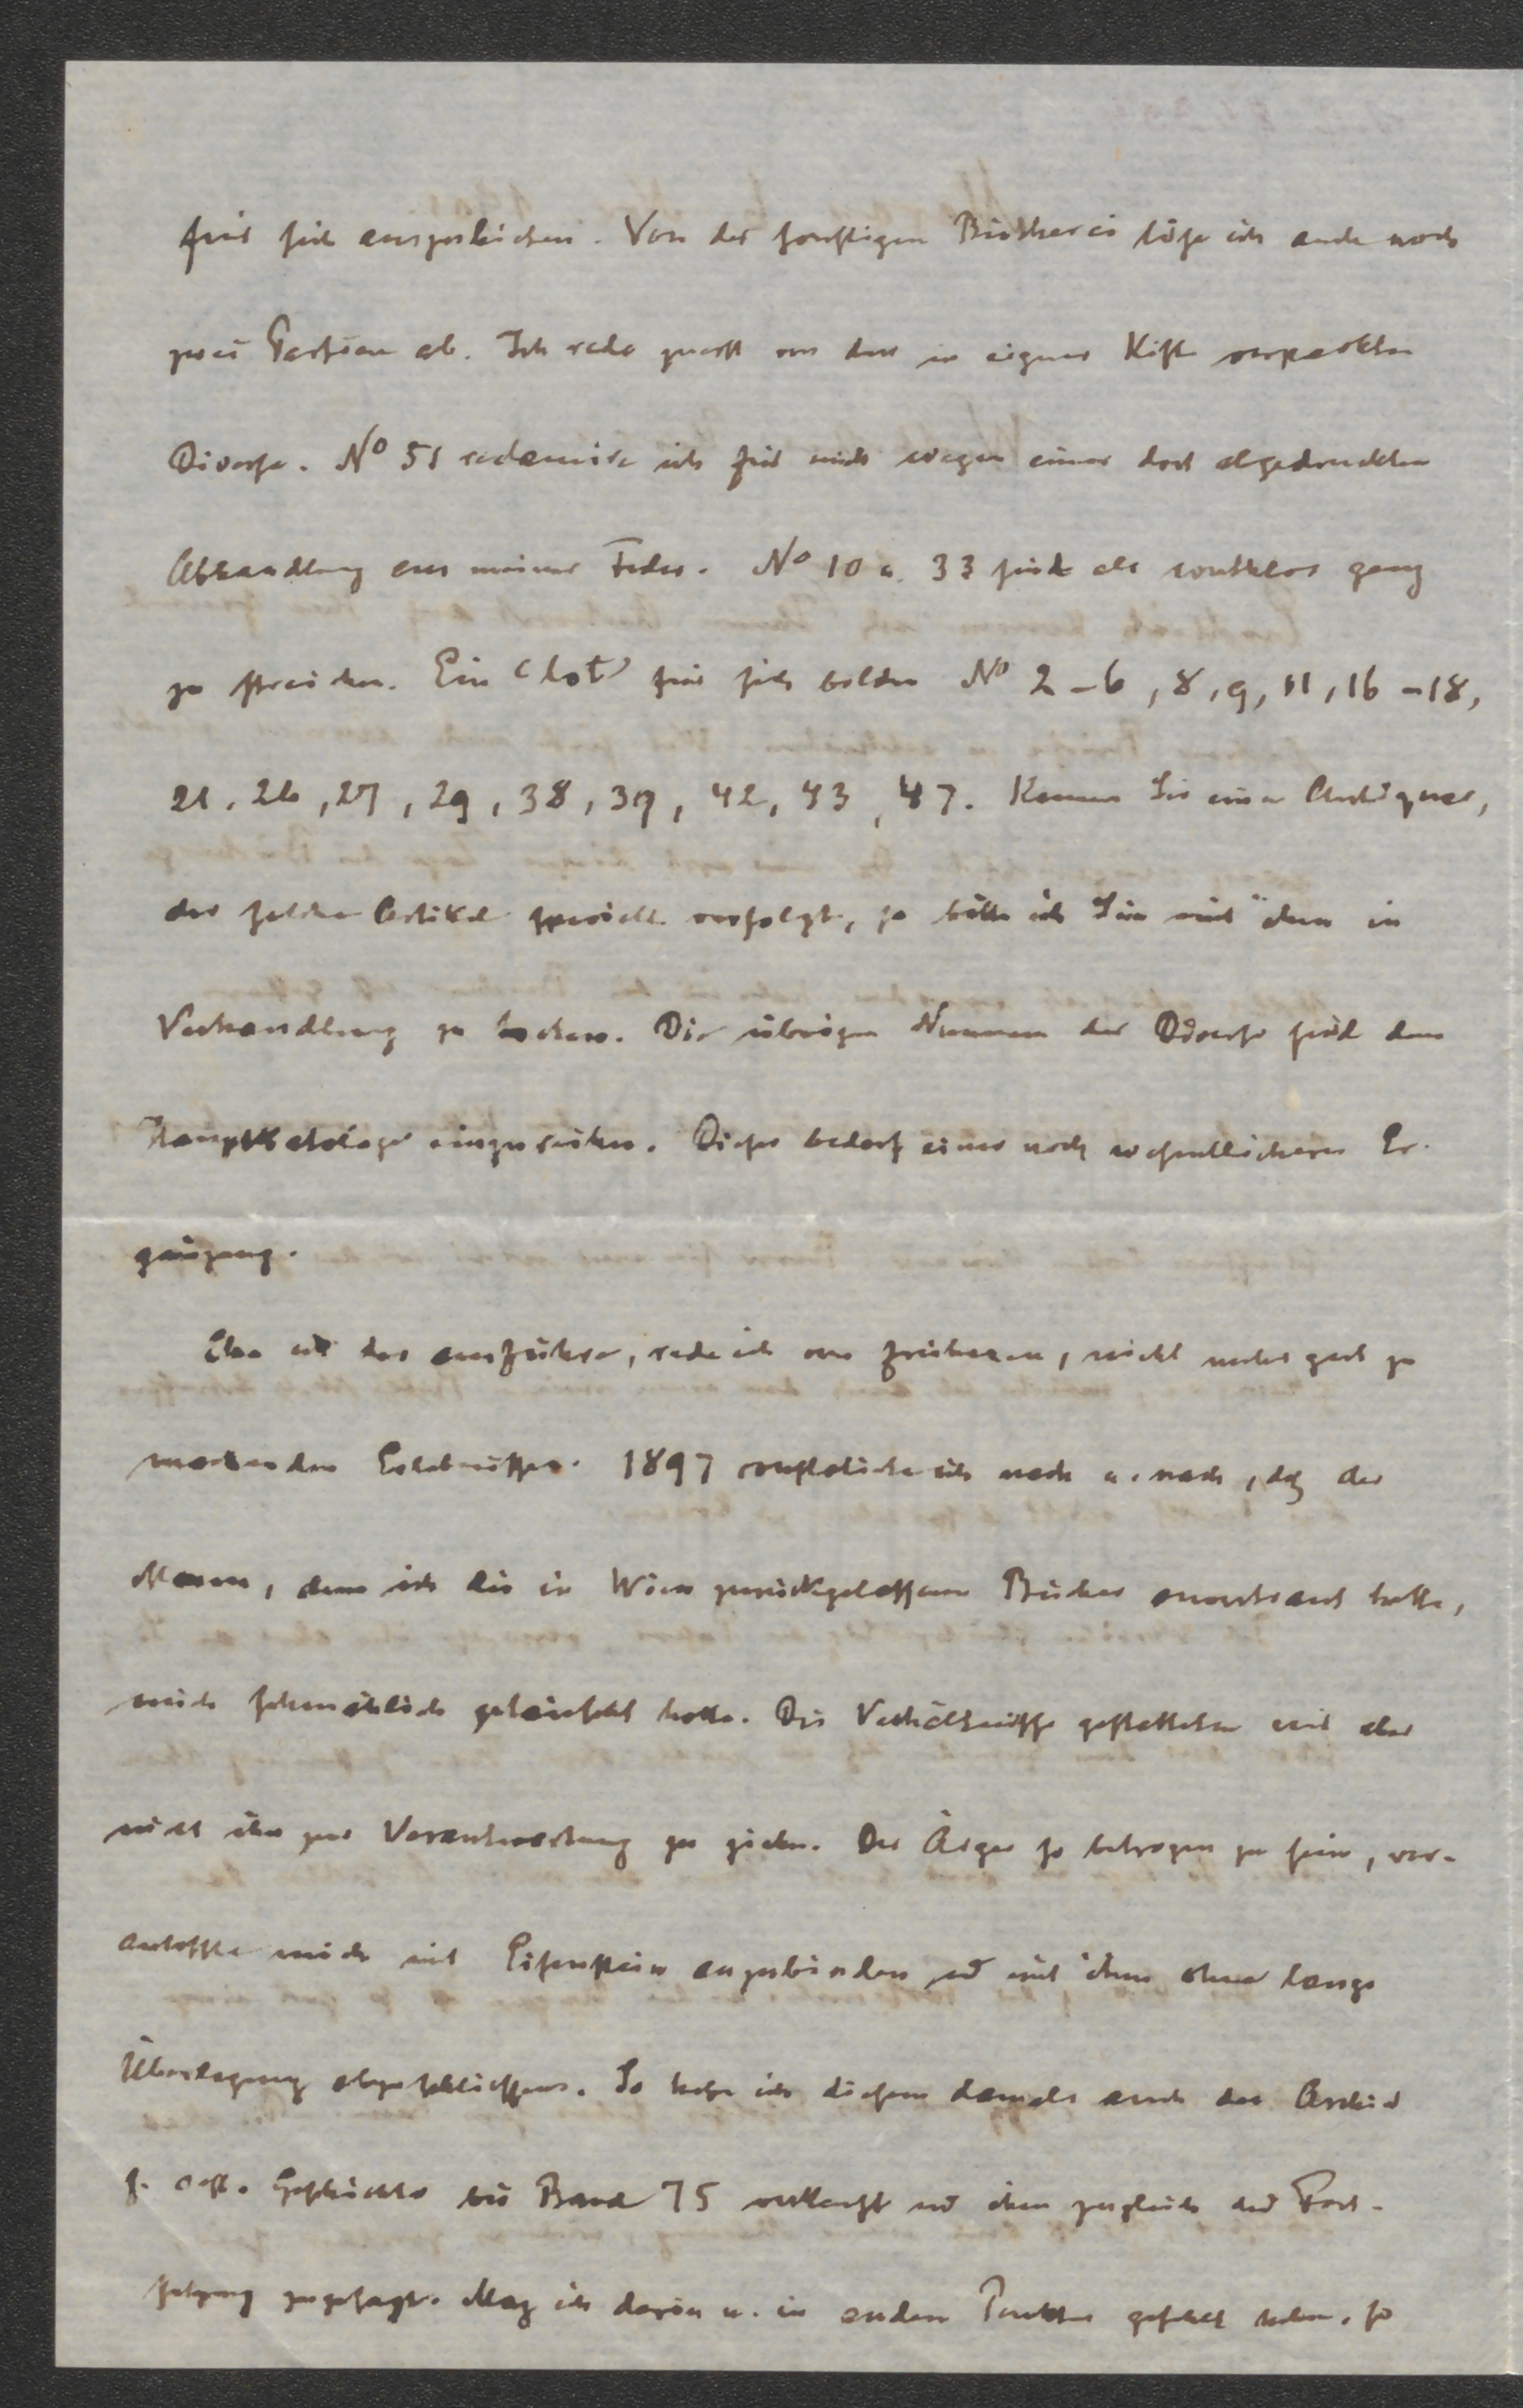 für sich auszuscheiden. Von der sonstigen Bücherei löse ich auch noch
zwei Partien ab. Ich rede zuerst von den in eigner Kiste verpackten
Diversa. No 51 reclamire ich für mich wegen einer dort abgedruckten
Abhandlung aus meiner Feder. No 10 u. 33 sind als werthlos ganz
zu streichen. Ein "lot" für sich bilden No 2-6, 8, 9, 11, 16-18,
21, 26, 27, 29, 38, 39, 42, 43, 47. Kennen Sie einen Antiquar,
der solche Artikel speciell verfolgt, so bitte ich Sie mit ihm in
Verhandlung zu treten. Die übrigen Nummern der Diversa sind dem
Hauptkataloge einzureihen. Dieser bedarf einer noch wesentlicheren Er-
gänzung.
Ehe ich das ausführe, rede ich von früheren, nicht mehr gut zu
machenden Erlebnissen. 1897 constatirte ich nach u. nach, daß der
Mann, dem ich die in Wien zurückgelassenen Bücher anvertraut hatte,
mich schmählich getäuscht hatte. Die Verhältnisse gestatteten mir aber
nicht ihn zur Verantwortung zu ziehen. Der Ärger so betrogen zu sein, ver-
anlasste mich mit Eisenstein anzubinden und mit ihm ohne lange
Überlegung abzuschliessen. So habe ich diesem damals auch das Archiv
f. oest. Geschichte bis Band 75 verkauft und ihm zugleich die Fort-
setzung zugesagt. Mag ich darin u. in andern Punkten gefehlt haben, so